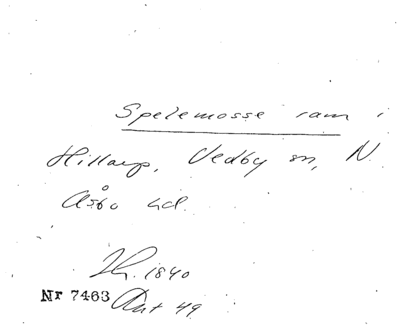 Spelemosse ram i
Hillarp, Vedby sn, N.
Åsbo hd.
Jh. 1840
Nr 7463 Ant 49